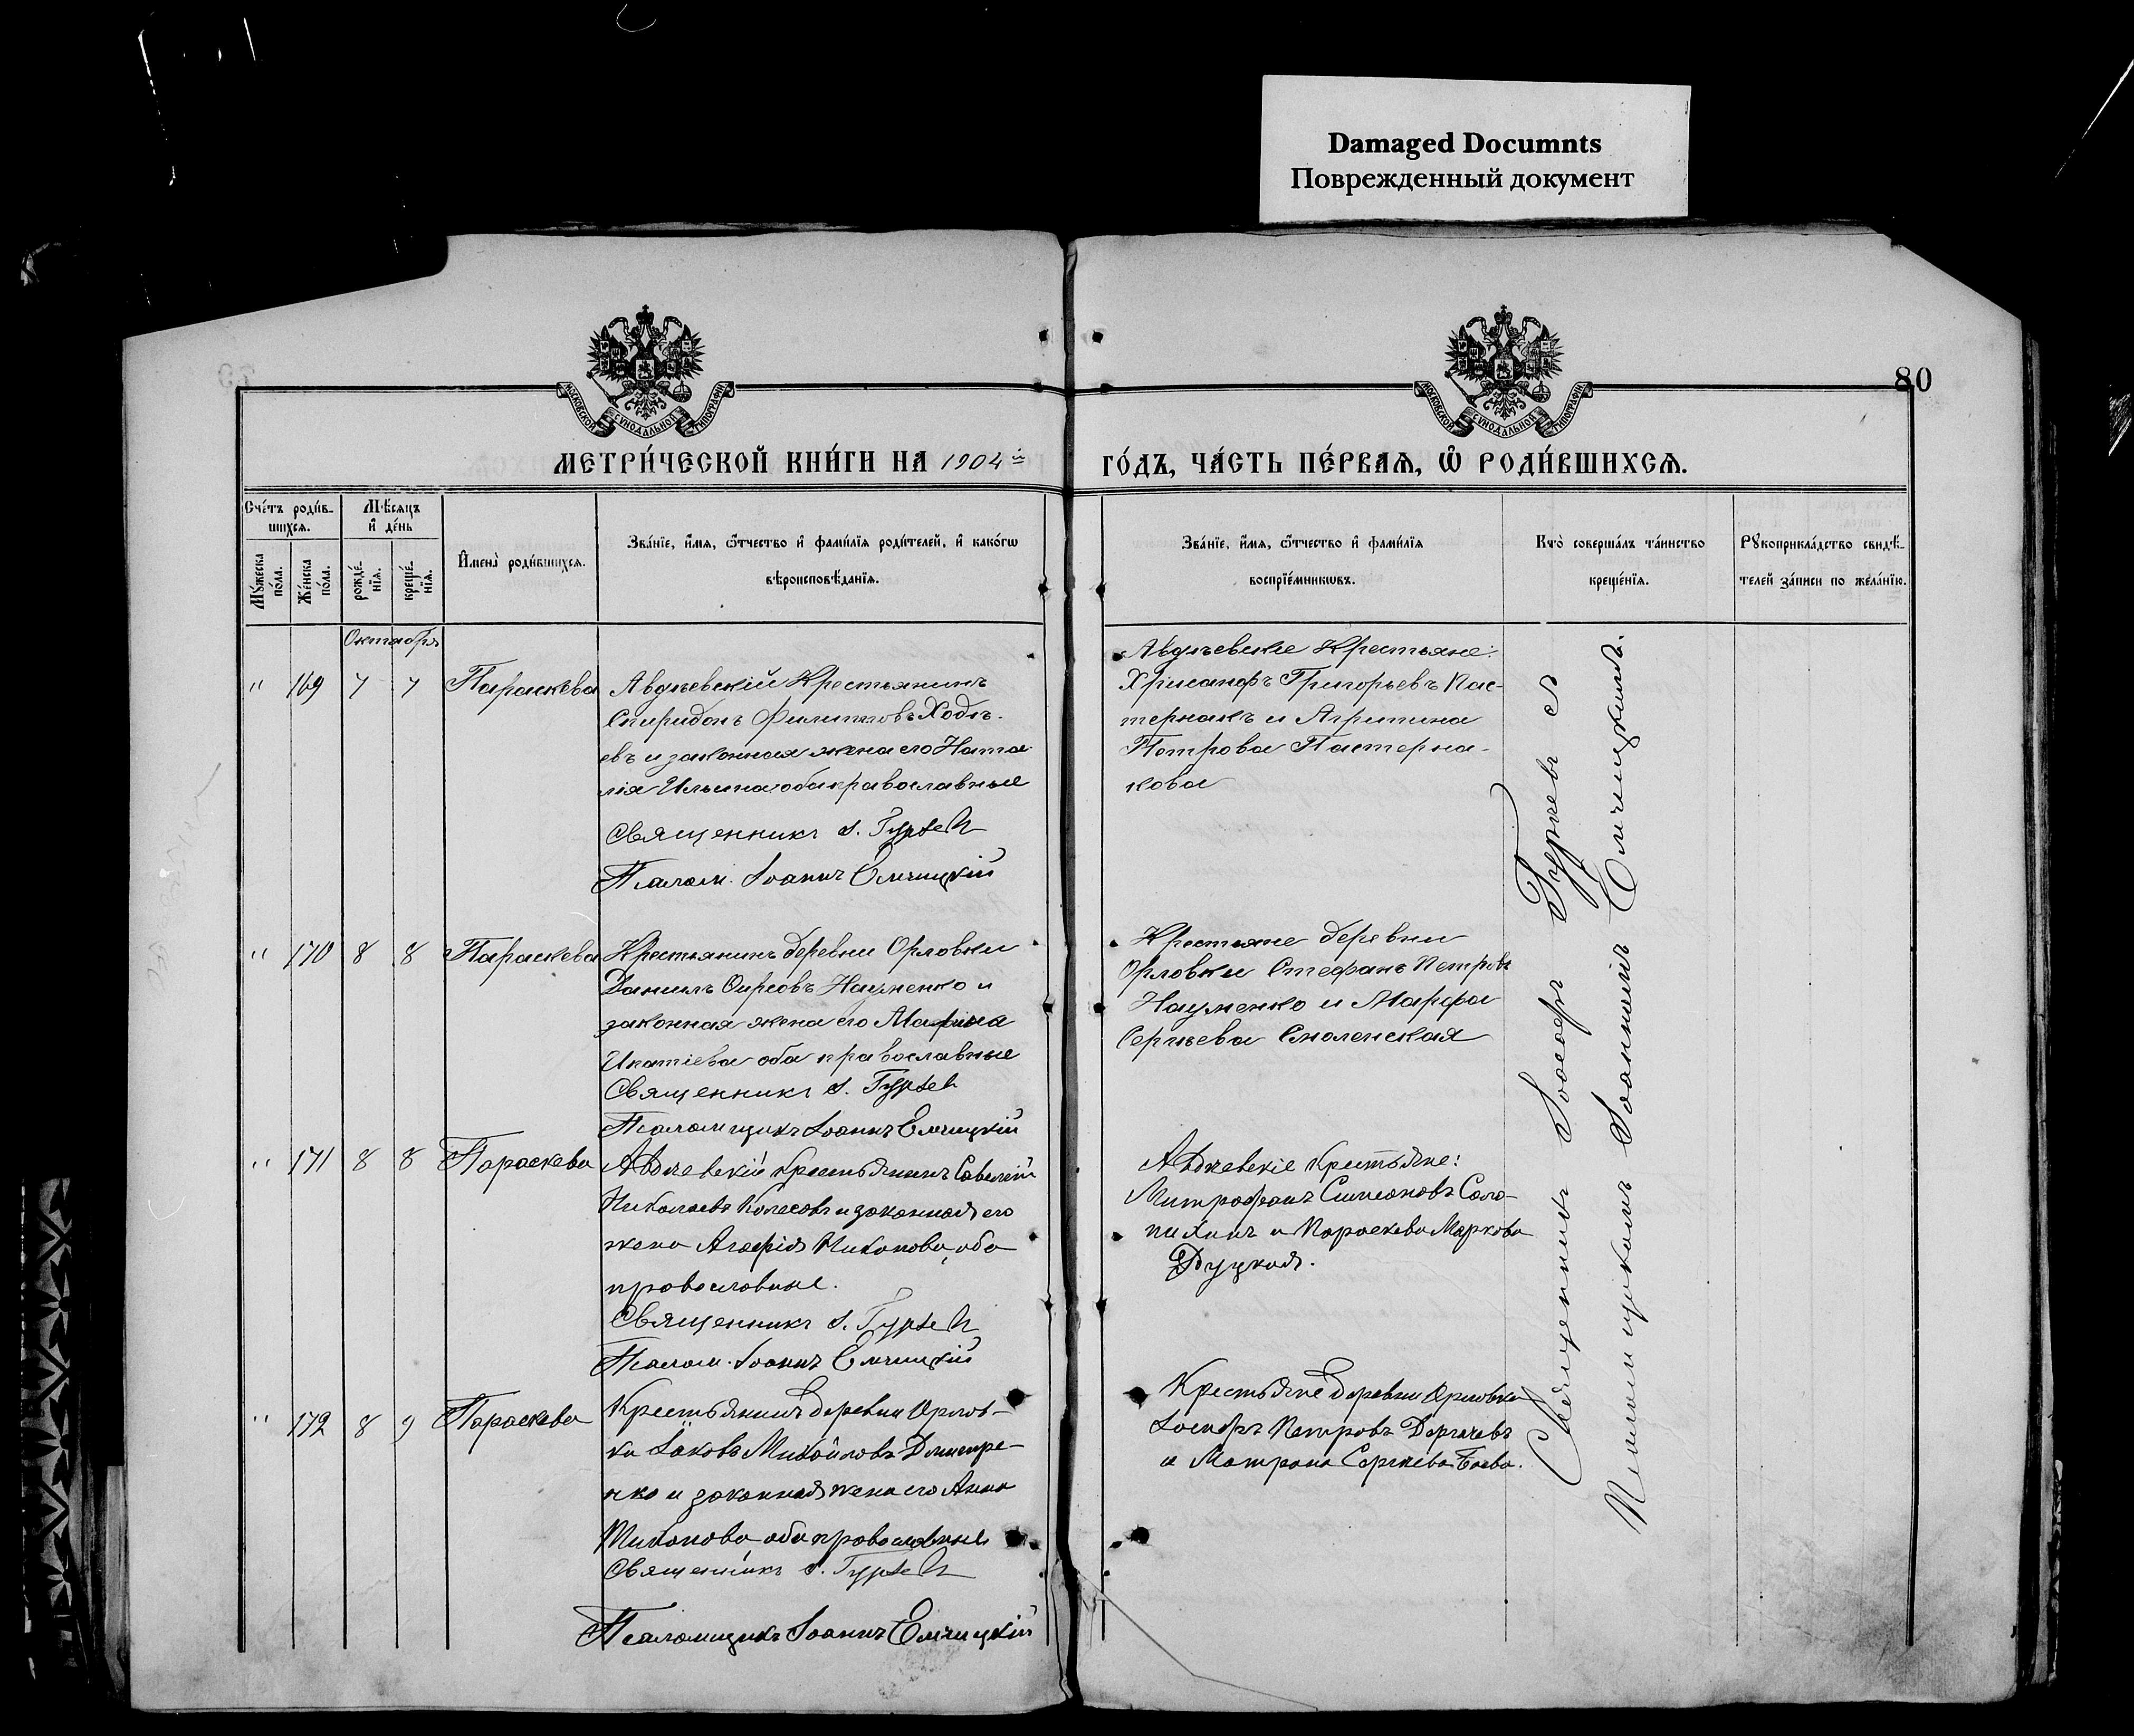 Damaged Documnts
Поврежденный документ
80
МОСКОВСКОЙ СУНОДАЛЬНОЙ ТИПОГРАФІИ
МОСКОВСКОЙ СУНОДАЛЬНОЙ ТИПОГРАФІИ
МЕТРИ́ЧЕСКОЙ КНИ́ГИ НА 1904 й
ГО́ДЪ, ЧА́СТЬ ПЕ́РВАѦ, Ѽ РОДИ́ВШИХСѦ.
Сче́тъ роди́в-
шихсѧ.
Мꙋ́жеска по́ла.
Же́нска по́ла.
Мѣ́сѧцъ
и҆ де́нь
рожде́-
нїѧ.
креще́-
нїѧ.
И҆мена̀ роди́вшихсѧ.
Зва́нїе, и҆́мѧ, ѻ҆́тчество и҆ фами́лїѧ роди́телей, и҆ како́гѡ
вѣроисповѣ́данїѧ.
Зва́нїе, и҆́мѧ, ѻ҆́тчество и҆ фами́лїѧ
воспрїе́мникѡвъ.
Кто̀ соверша́лъ та́инство
креще́нїѧ.
Рꙋкоприкла́дство свидѣ́-
телей за́писи по жела́нїю.
Октября
" 169 7 7 Параскева
Авдѣевскій Крестьянинъ
Спиридонъ Филипповъ Ходѣ-
евъ и законная жена его Ната-
лія Ильина оба православные
Священникъ І. Гурьевъ
Псалом. Іоаннъ Емчицкій
Авдѣевскіе Крестьяне:
Хрисанфъ Григорьевъ Пас-
тернакъ и Агрипина
Петрова Пастерна-
кова
" 170 8 8 Параскева
Крестьянинъ деревни Орловки
Даніилъ Фирсовъ Науменко и
законная жена его Марина
Игнатіева оба православные
Священникъ І. Гурьевъ
Псаломщикъ Іоаннъ Емчицкій
Крестьяне деревни
Орловки Стефанъ Петровъ
Науменко и Марфа
Сергѣева Смоленская
" 171 8 8 Параскева
Авдѣевскій крестьянинъ Савелій
Николаевъ Колесовъ и законная его
жена Агафія Никонова, оба
православные.
Священникъ І. Гурьевъ
Псалом. Іоаннъ Емчицкій
Авдѣевскіе крестьяне:
Митрофанъ Симеоновъ Сала-
пихинъ и Параскева Маркова
Дуцкая.
" 172 8 9 Параскева
Крестьянинъ деревни Орлов-
ки Іаковъ Михайловъ Дмитре-
нко и законная жена его Анна
Никонова, оба православные
Священникъ І. Гурьевъ
Псаломщикъ Іоаннъ Емчицкій
Крестьяне деревни Орловки
Іосифъ Петровъ Дергачевъ
и Матрона Сергѣева Баева.
Священникъ Іосифъ Гурьевъ съ
Псаломщикомъ Іоанномъ Емчицкимъ.